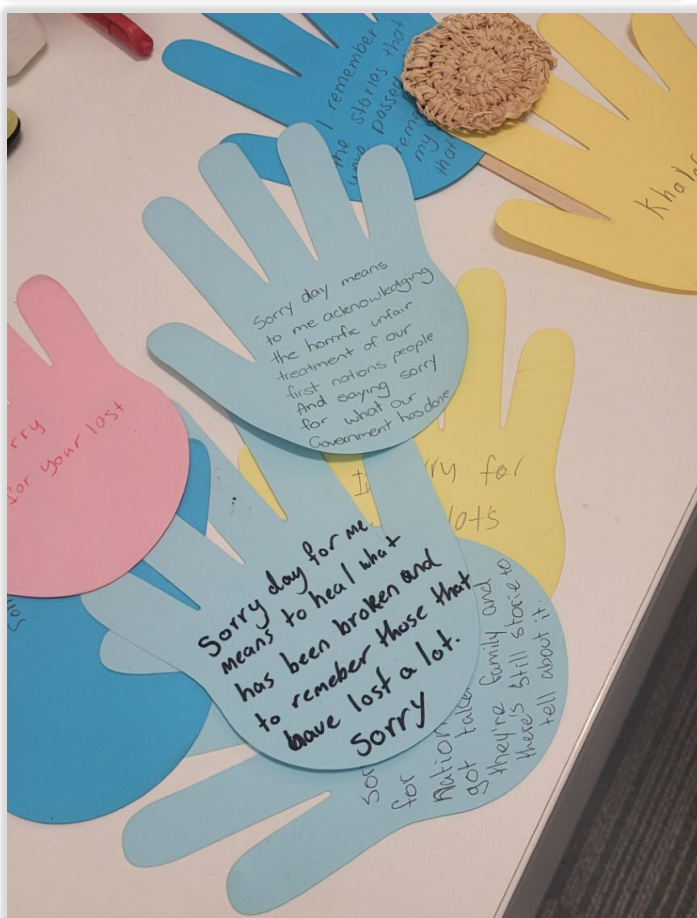 I remember
the stories that
have passed
my
that
Khal
Sorry day means
to me acknowledging
the horrific unfair
treatment of our
first nations people
And saying sorry
for what our
Government has done
rry
for your lost
ry for
lots
Sorry day for me
means to heal what
has been broken and
to remeber those that
have lost a lot.
Sorry
for
Nation
got take
they're family and
there's still storie to
tell about it.